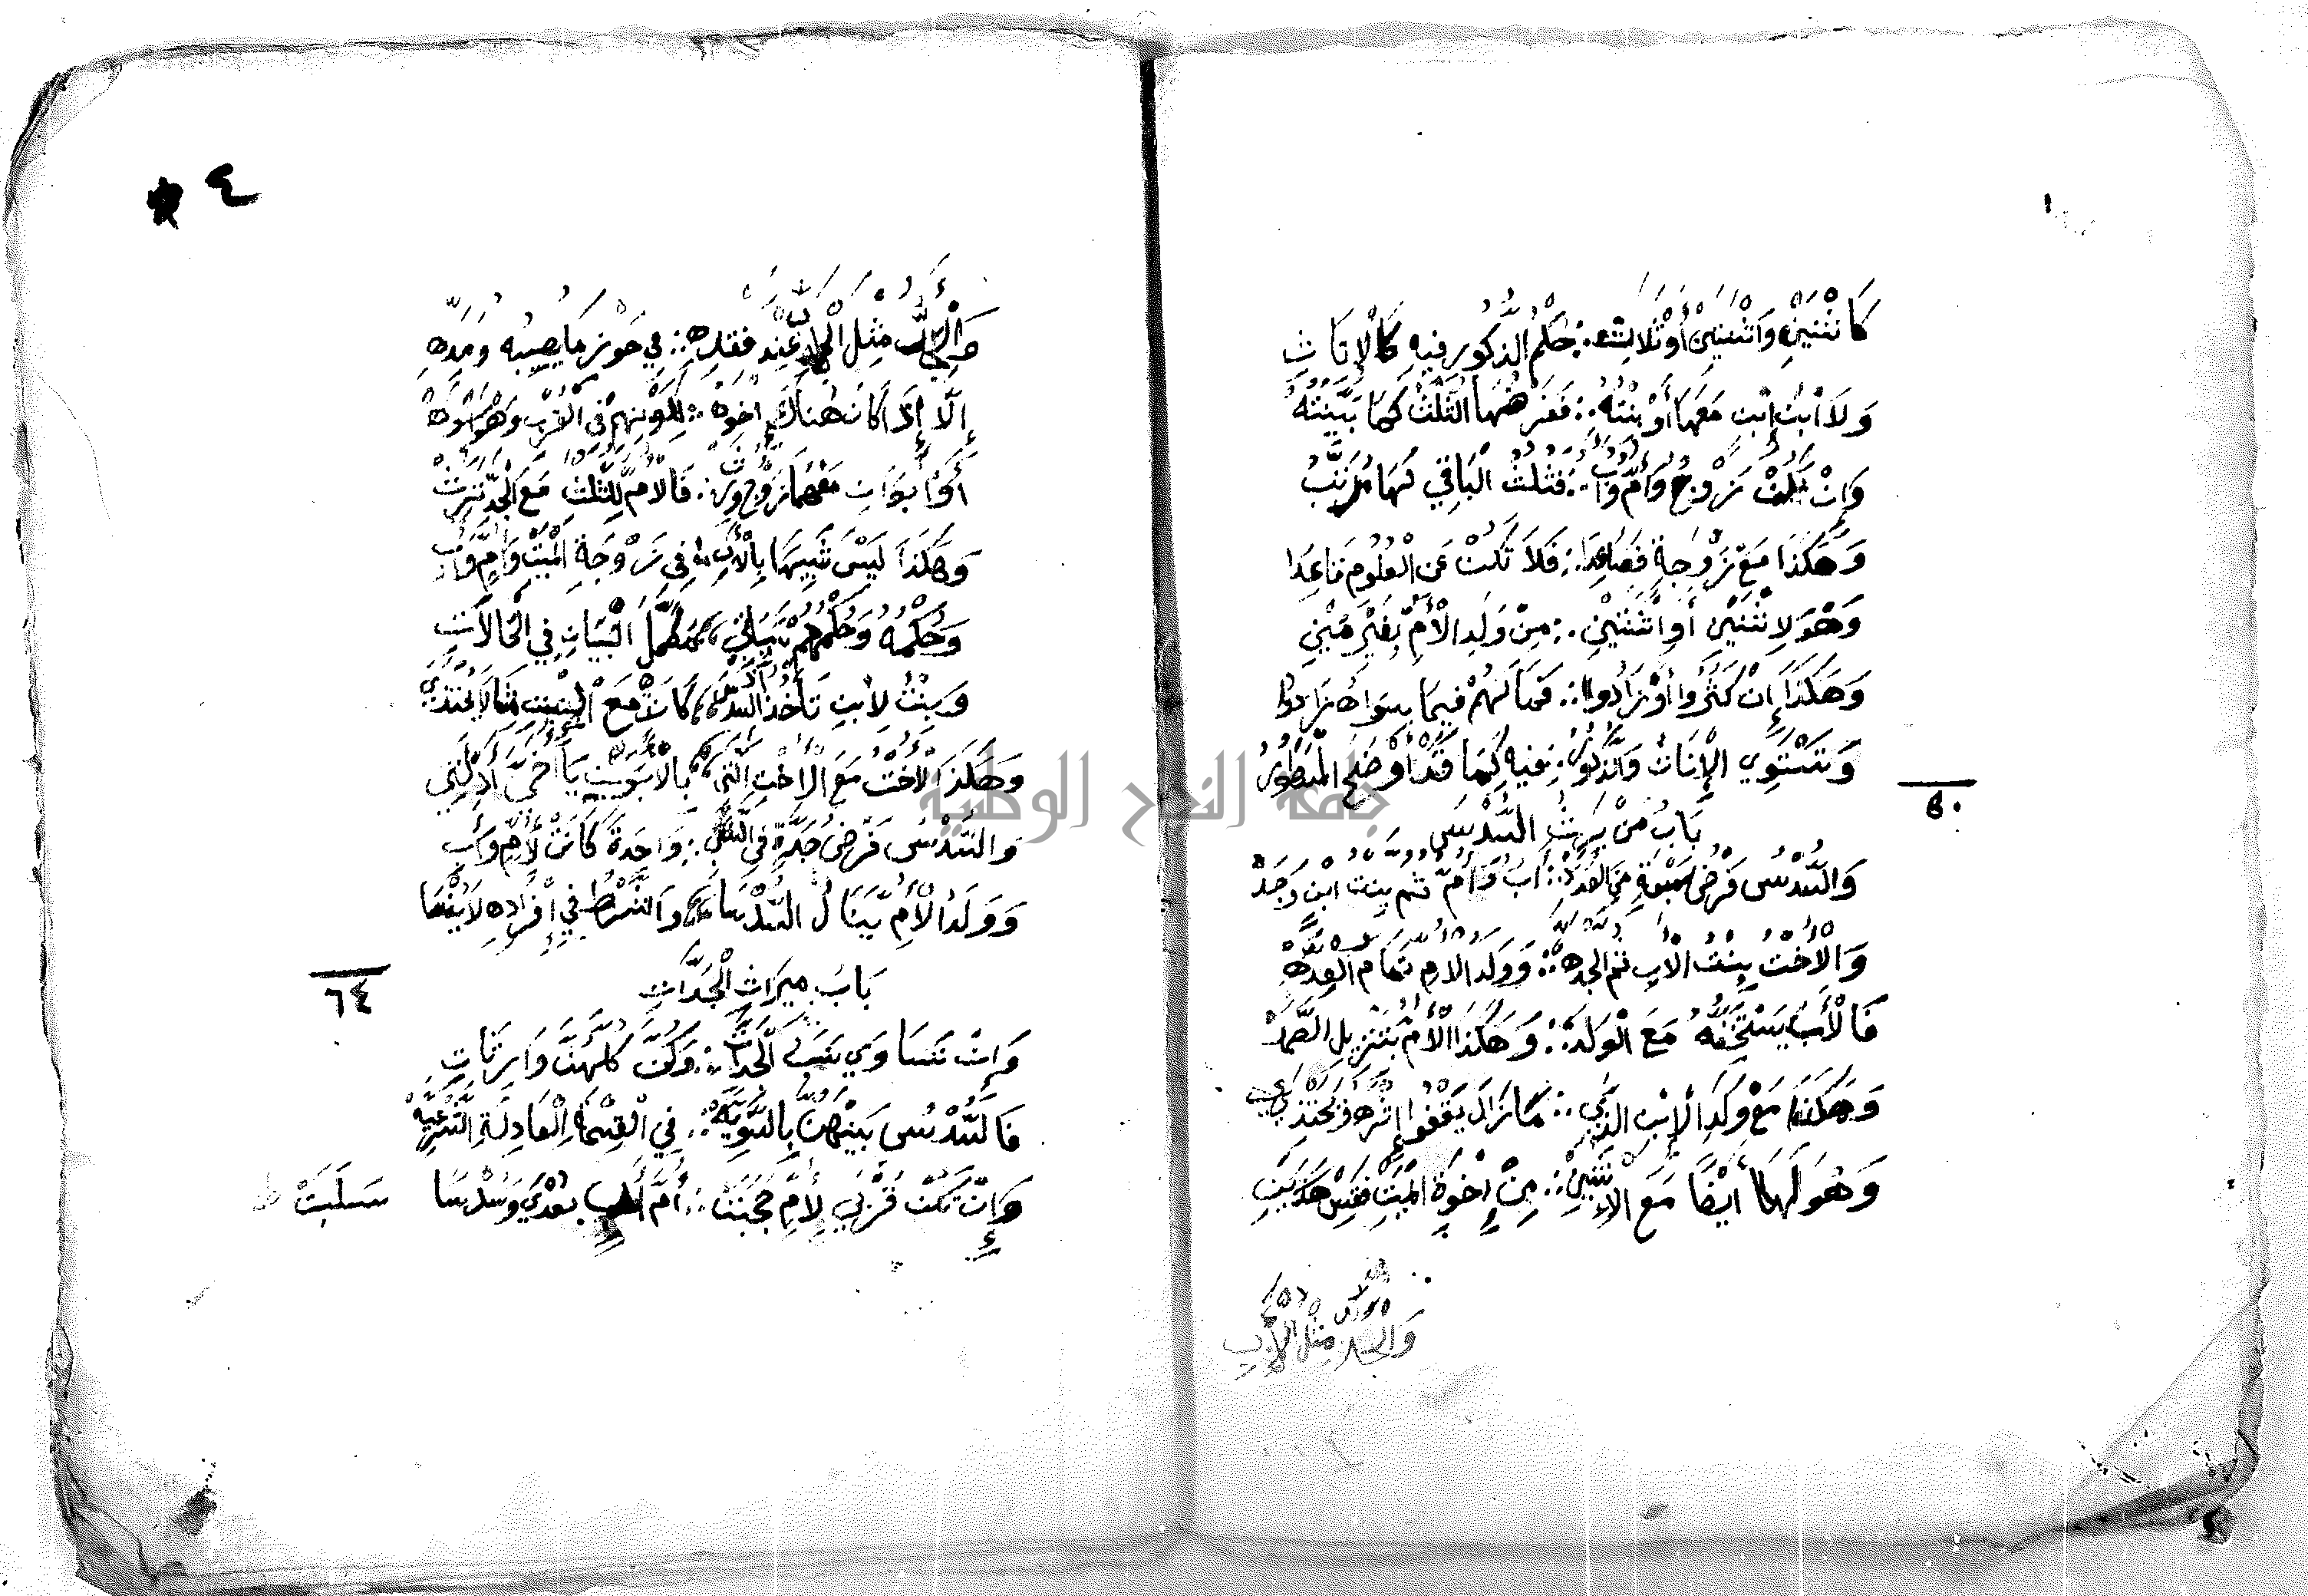 كَاثْنَيْنِ وَاثْنَتَيْنِ أَوْ ثَلَاثِ ∴ حُكْمُ الذُّكُورِ فِيهِ كَالْإِنَاثِ
وَلَا ابْنُ إِبْنٍ مَعَهَا أَوْ بِنْتُهُ ∴ فَفَرْضُهَا الثُّلْثُ كَمَا بَيَّنْتُهُ
وَإِنْ يَكُنْ زَوْجٌ وَأُمٌّ وَأَبُ ∴ فَثُلْثُ الْبَاقِي لَهَا مُرَتَّبُ
وَهَكَذَا مَعْ زَوْجَةٍ فَصَاعِدَا ∴ فَلَا تَكُنْ عَنِ الْعُلُومِ قَاعِدَا
وَهْوَ لِاثْنَيْنِ أَوِ اثْنَتَيْنِ ∴ مِنْ وَلَدِ الْأُمِّ بِغَيْرِ مَيْنِ
وَهَكَذَا إِنْ كَثُرُوا أَوْ زَادُوا ∴ فَمَا لَهُمْ فِيمَا سِوَاهُ زَادُ
وَيَسْتَوِي الْإِنَاثُ وَالذُّكُورُ ∴ فِيهِ كَمَا قَدْ أَوْضَحَ الْمَسْطُورُ
٥٠
بَابُ مَنْ يَرِثُ السُّدْسَ
وَالسُّدْسُ فَرْضُ سَبْعَةٍ مِنَ الْعَدَدْ ∴ أَبٌ وَأُمٌّ ثُمَّ بِنْتُ ابْنٍ وَجَدْ
وَالْأُخْتُ بِنْتُ الْأَبِ ثُمَّ الْجَدَّهْ ∴ وَوَلَدُ الْأُمِّ تَمَامُ الْعِدَّهْ
فَالْأَبُ يَسْتَحِقُّهُ مَعَ الْوَلَدْ ∴ وَهَكَذَا الْأُمُّ بِتَنْزِيلِ الصَّمَدْ
وَهَكَذَا مَعْ وَلَدِ الْإِبْنِ الَّذِي ∴ مَا زَالَ يَقْفُو إِثْرَهُ وَيَحْتَذِي
وَهُوَ لَهَا أَيْضًا مَعَ الْإِثْنَيْنِ ∴ مِنْ إِخْوَةِ الْمَيْتِ فَقِسْ هَذَيْنِ
وَالْجَدُّ مِثْلُ الْأَبِ
٤
وَالْجَدُّ مِثْلُ الْأَبِ عِنْدَ فَقْدِهِ ∴ فِي حَوْزِ مَا يُصِيبُهُ وَمَدِّهِ
إِلَّا إِذَا كَانَ هُنَاكَ إِخْوَهْ ∴ لِكَوْنِهِمْ فِي الْقُرْبِ وَهْوَ أُسْوَهْ
أَوْ أَبَوَانِ مَعْهُمَا زَوْجٌ وَرِثْ ∴ فَالْأُمُّ لِلثُّلْثِ مَعَ الْجَدِّ تَرِثْ
وَهَكَذَا لَيْسَ شَبِيهًا بِالْأَبِ ∴ فِي زَوْجَةِ الْمَيْتِ وَأُمٍّ وَأَبِ
وَحُكْمُهُ وَحُكْمُهُمْ سَيَأْتِي ∴ مُكَمَّلَ الْبَيَانِ فِي الْحَالَاتِ
وَبِنْتُ لِابْنِ تَأْخُذُ السُّدْسَ إِذَا ∴ كَانَتْ مَعَ الْبِنْتِ مِثَالًا يُحْتَذَى
وَهَكَذَا الْأُخْتُ مَعَ الْأُخْتِ الَّتِي ∴ بِالْأَبَوَيْنِ يَا أُخَيَّ أَدْلَتِ
وَالسُّدْسُ فَرْضُ جَدَّةٍ فِي النَّسَبِ ∴ وَاحِدَةً كَانَتْ لِأُمٍّ وَأَبِ
وَوَلَدُ الْأُمِّ يَنَالُ السُّدْسَا ∴ وَالشَّرْطُ فِي إِفْرَادِهِ لَا يُنْسَا
بَابُ مِيرَاثِ الْجَدَّاتِ
٦٤
وَإِنْ تَسَاوَى نَسَبُ الْجَدَّاتِ ∴ وَكُنَّ كُلُّهُنَّ وَارِثَاتِ
فَالسُّدْسُ بَيْنَهُنَّ بِالسَّوِيَّهْ ∴ فِي الْقِسْمَةِ الْعَادِلَةِ الشَّرْعِيَّهْ
وَإِنْ تَكُنْ قُرْبَى لِأُمٍّ حَجَبَتْ ∴ أُمَّ أَبٍ بُعْدَى وَسُدْسًا سَلَبَتْ
جامعة النجاح الوطنية